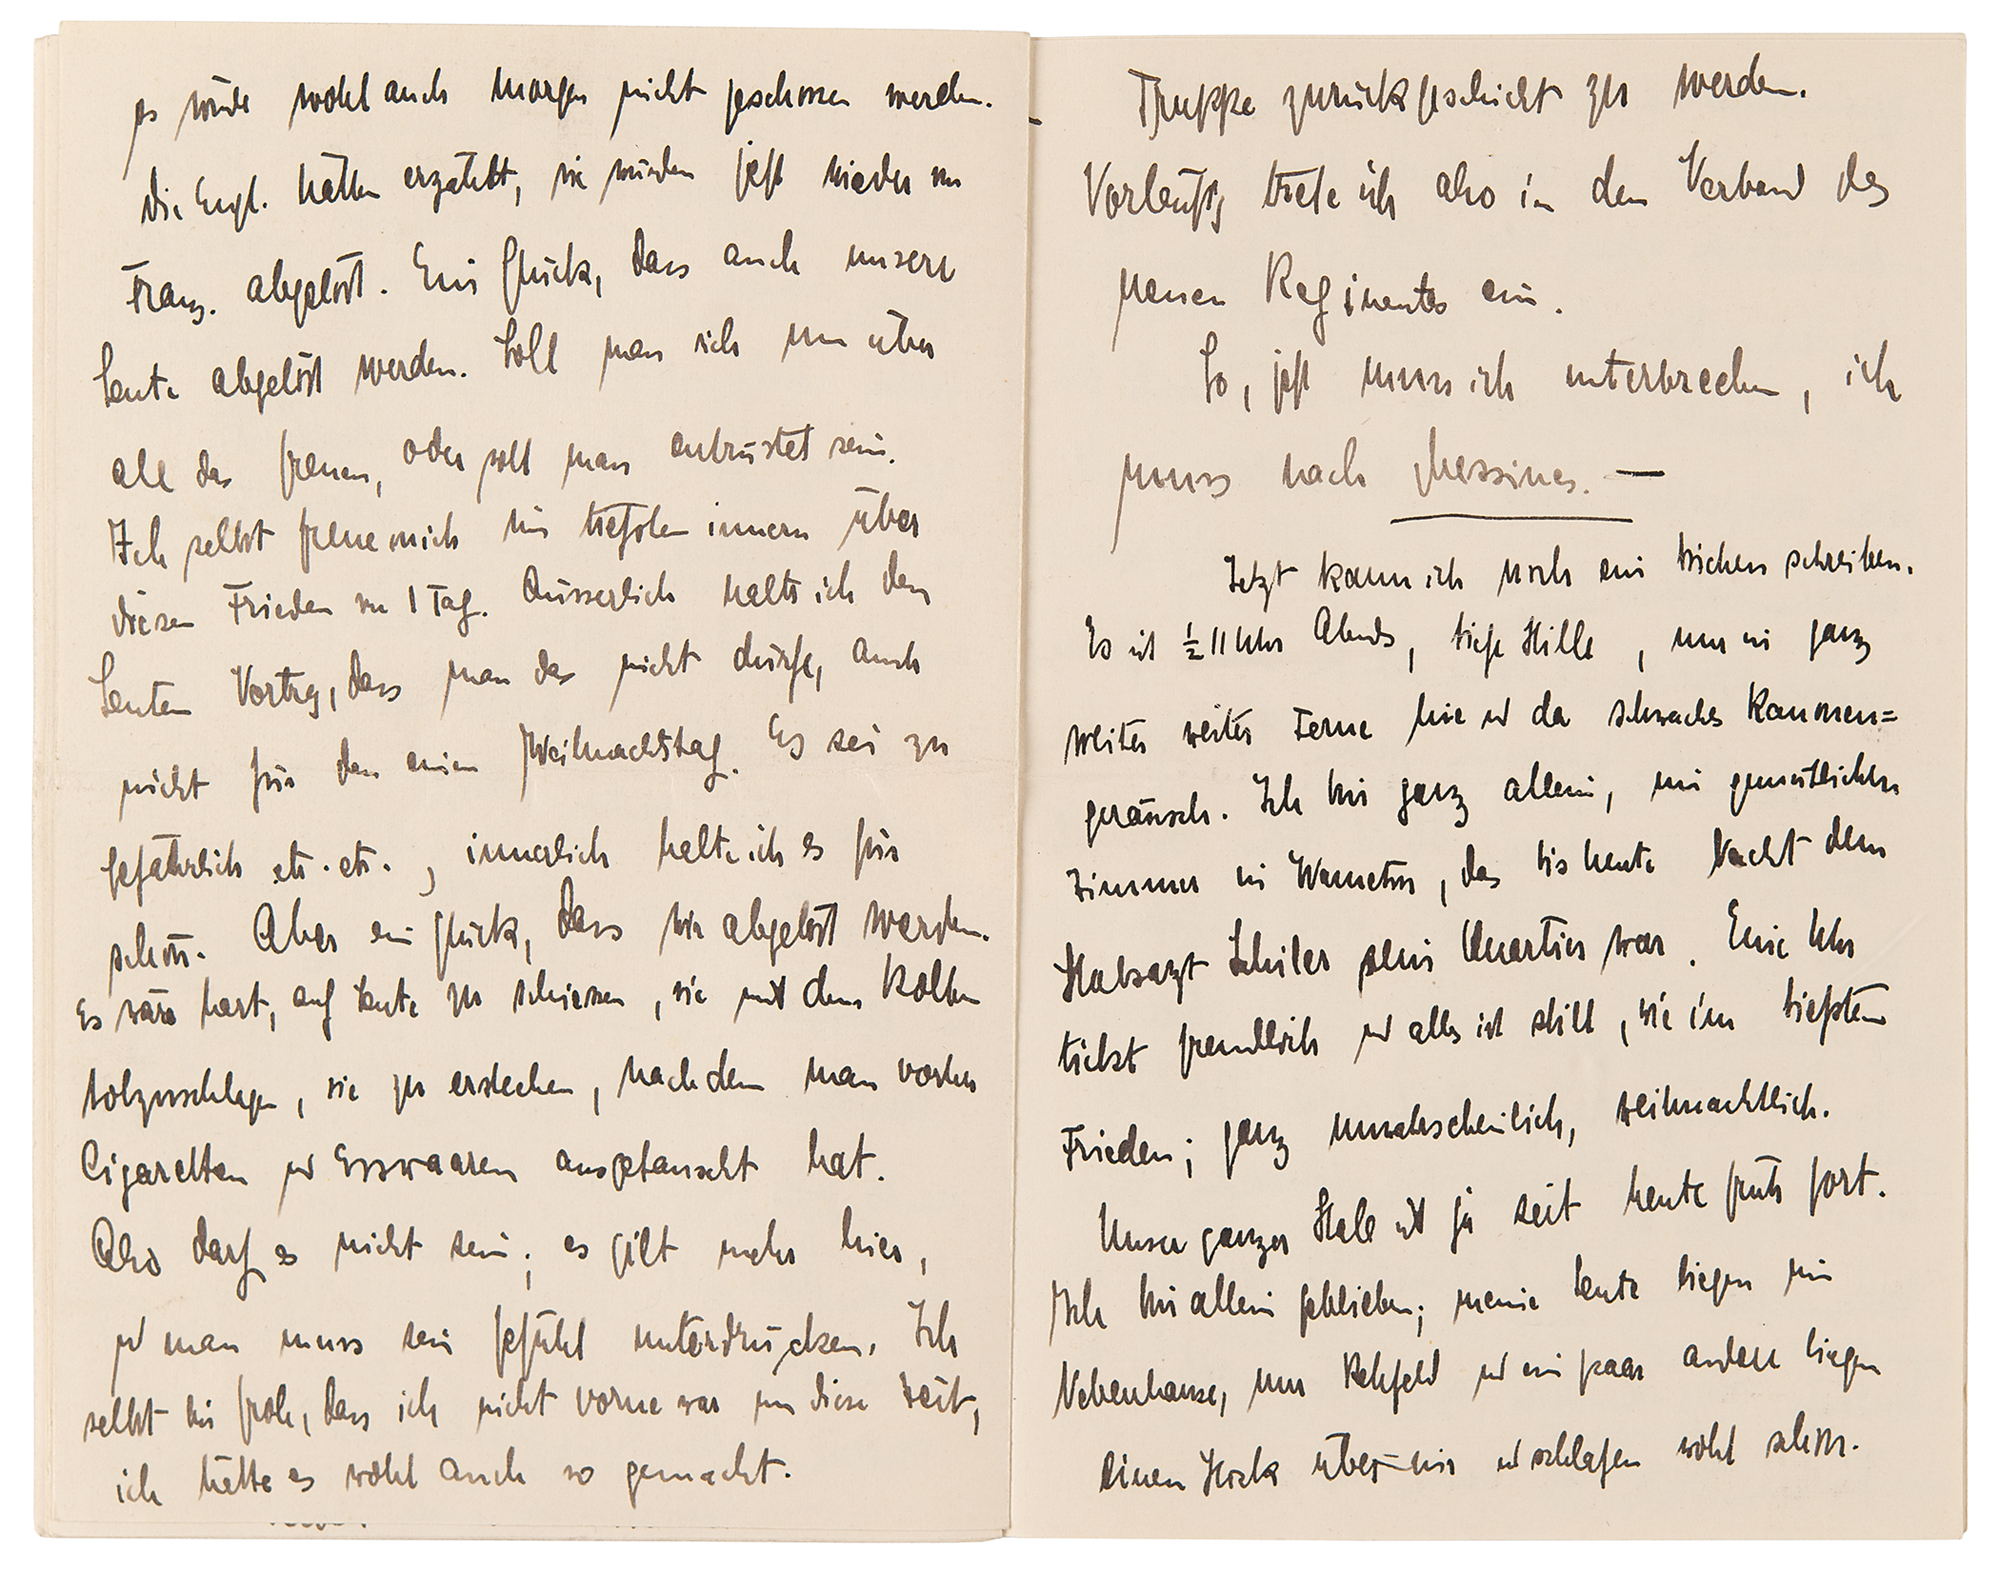 es würde wohl auch morgen nicht geschossen werden.
Die Engl. hätten erzählt, sie würden jetzt wieder von
Franz. abgelöst. Ein Glück, dass auch unsere
Leute abgelöst werden. Soll man sich nun über
all das freuen, oder soll man entrüstet sein.
Ich selbst freue mich im tiefsten innern über
diesen Frieden von 1 Tag. Äusserlich halte ich den
Leuten Vortrag, dass man das nicht dürfe, auch
nicht für den einen Weihnachtstag. Es sei zu
gefährlich etc. etc., innerlich halte ich es für
schön. Aber ein Glück, dass wir abgelöst werden.
Es wäre hart, auf Leute zu schiessen, sie mit dem Kolben
totzuschlagen, sie zu erstechen, nachdem man vorher
Cigaretten u Esswaaren ausgetauscht hat.
Also darf es nicht sein; es gilt mehr hier,
u man muss sein Gefühl unterdrücken. Ich
selbst bin froh, dass ich nicht vorne war um diese Zeit,
ich hätte es wohl auch so gemacht.
Truppe zurückgeschickt zu werden.
Vorläufig trete ich also in den Verband des
neuen Regimentes ein.
So, jetzt muss ich unterbrechen, ich
muss nach Messines. —
Jetzt kann ich noch ein bischen schreiben.
Es ist ½ 11 Uhr Abends, tiefe Stille, nur in ganz
weiter weiter Ferne hie u da schwaches Kannonen=
geräusch. Ich bin ganz allein, im gemütlichen
Zimmer in Warneton, das bis heute Nacht dem
Stabsarzt sein Quartier war. Eine Uhr
tickt freundlich u alles ist still, wie im tiefsten
Frieden; ganz unwahrscheinlich, weihnachtlich.
Unser ganzer Stab ist ja seit heute früh fort.
Ich bin allein geblieben; meine Leute liegen im
Nebenhause, nur Rehfeld u ein paar andere liegen
einen Stock über mir u schlafen wohl schon.